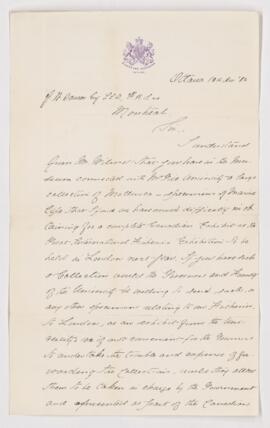 Ottawa
J. W. Dawson Esq LLD F.R.S.
Montreal
Sir,
I understand
from Mr that you have in the Mu-
seum connected with McGill University a large
collection of Mollusca - specimens of Marine
Life that I find we have some difficulty in ob-
taining for a complete Canadian Exhibit at the
Great International Fisheries Exhibition to be
held in London next year. If you have such
a Collection would the Governors and Faculty
of the University be willing to send such, or
any other specimens relating to our Fisheries
to London, as an exhibit from the Uni-
versity; or if not convenient for the Museum
to undertake the trouble and expense of for-
warding the collections, would they allow
them to be taken in charge by the Government
and represented as part of the Canadian